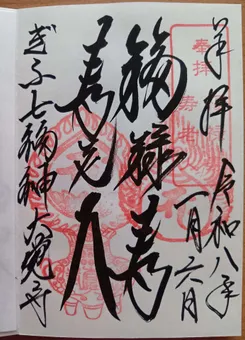 奉拝
令和八年
一月六日
福禄寿
寿老人
ぎふ七福神大覚寺
奉拝